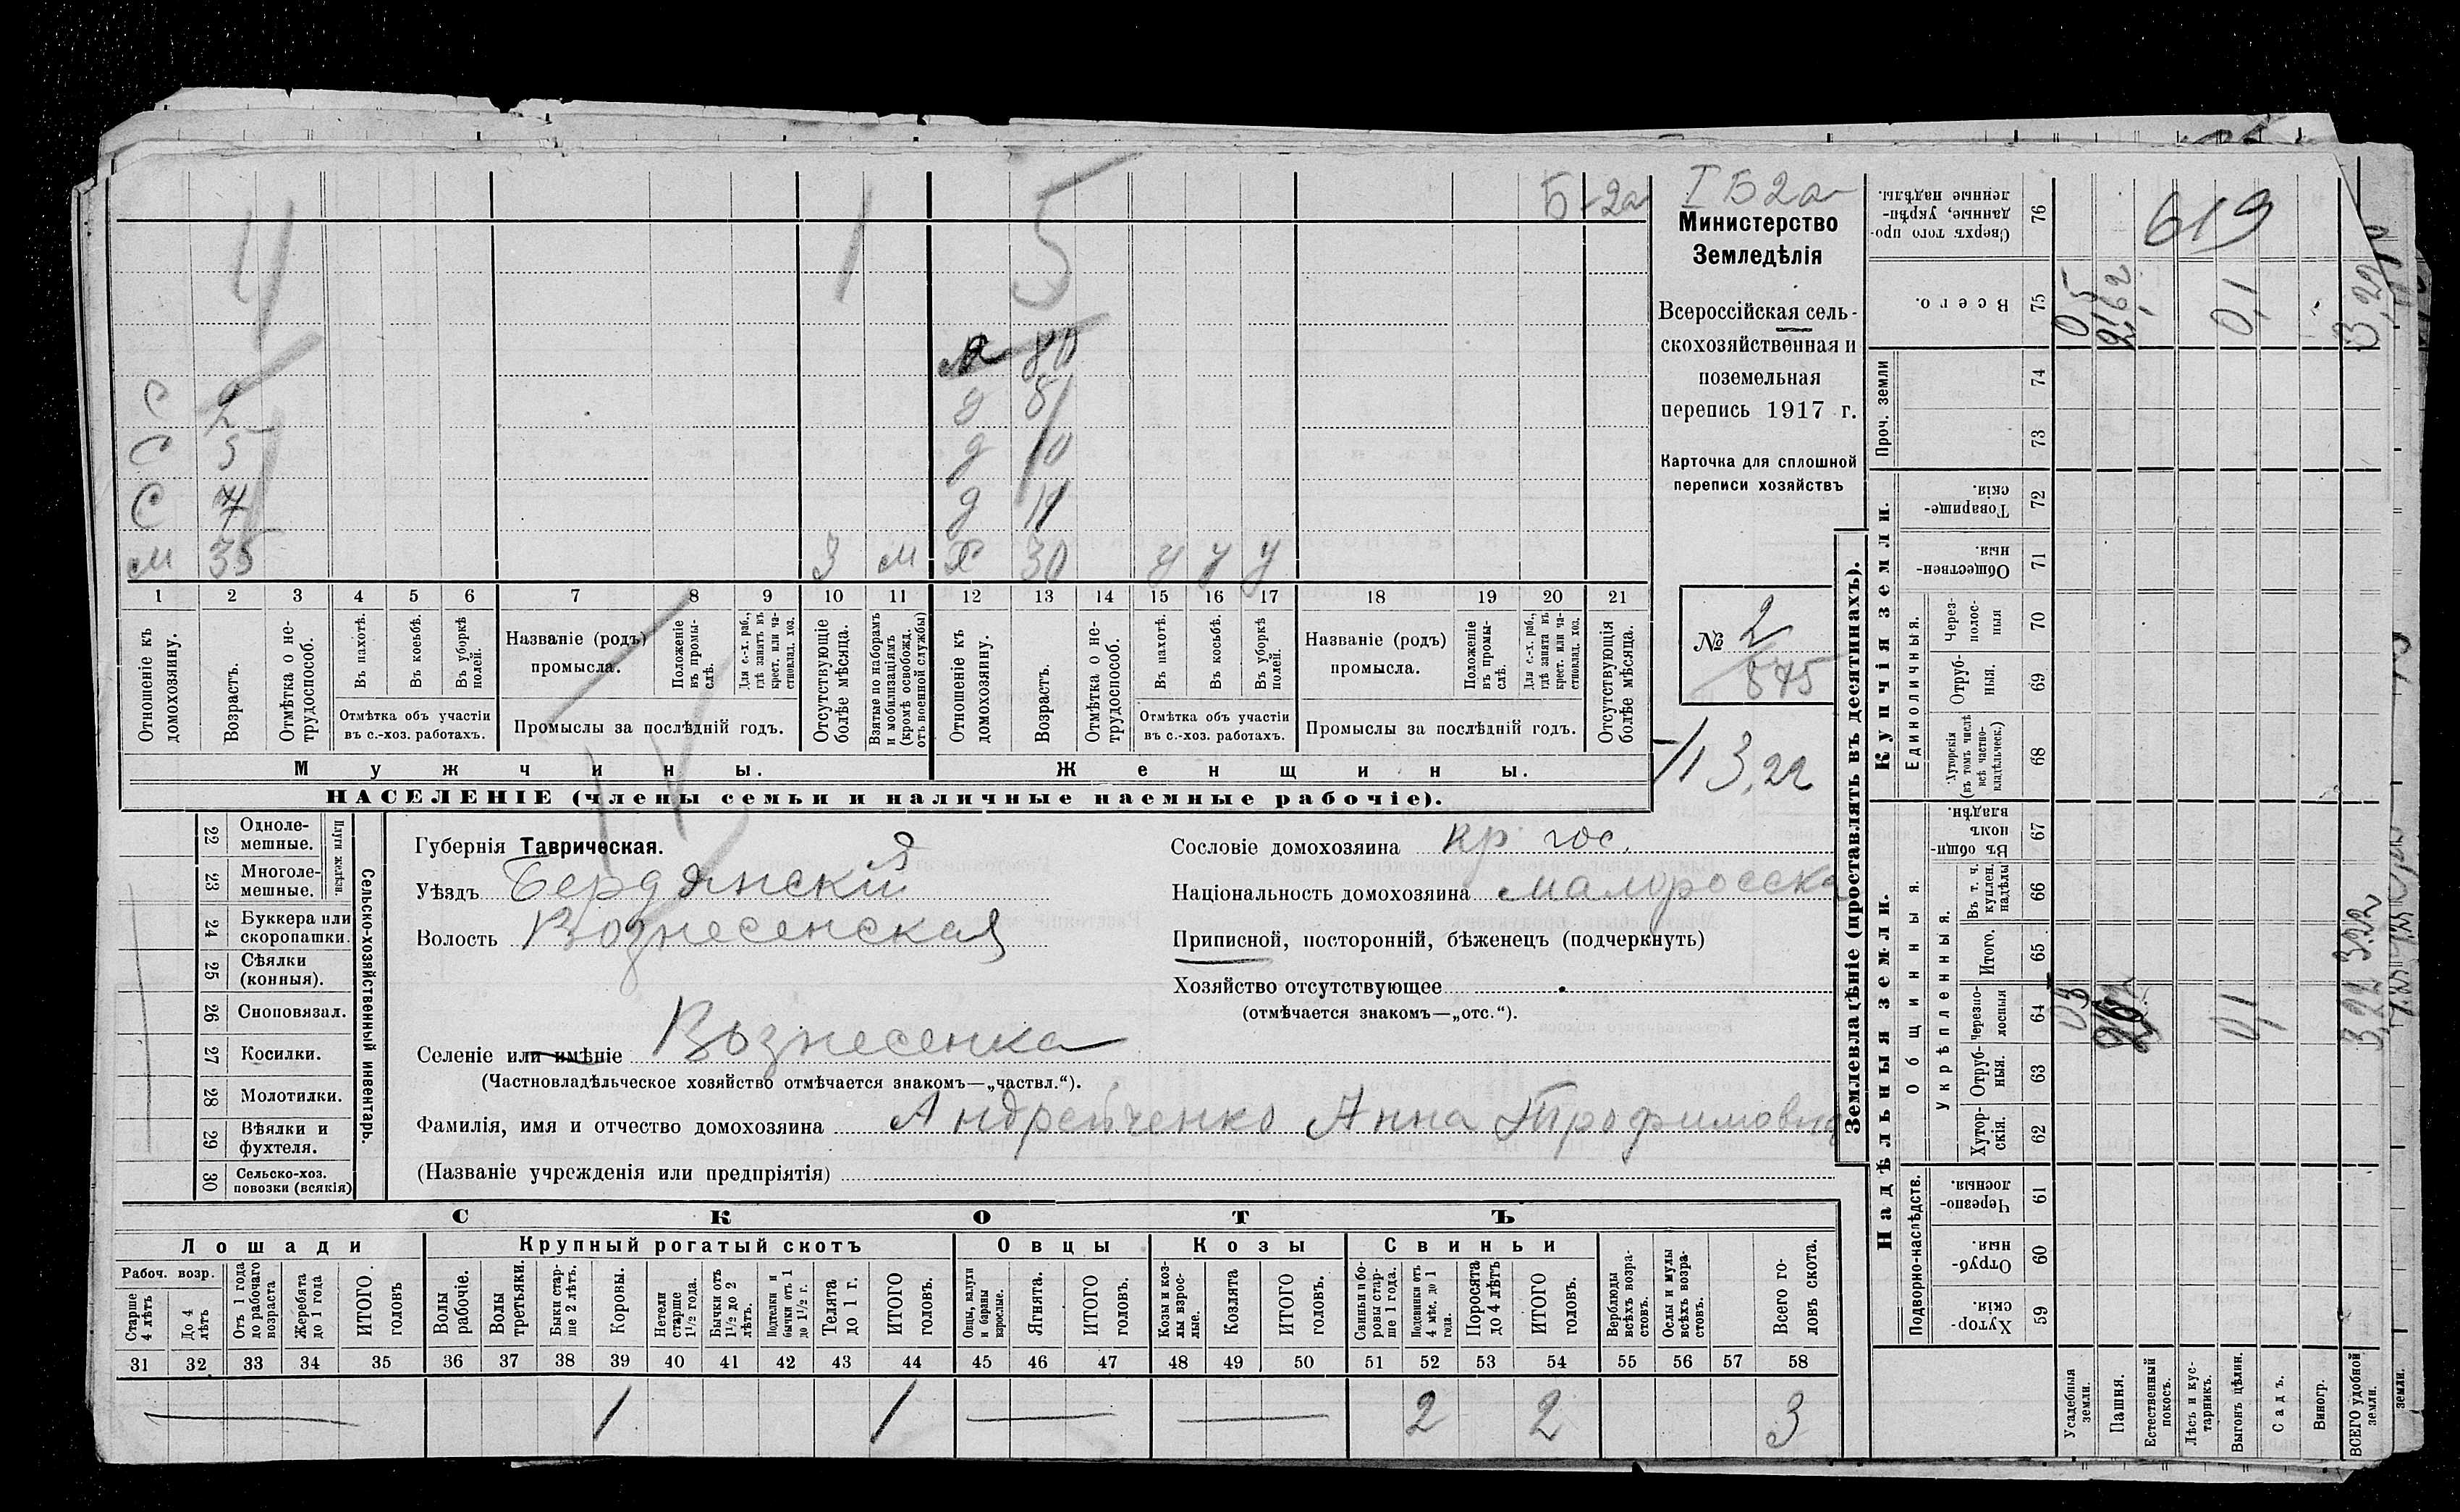 Б-2а
I Б2а
4 1 5
80
С 2 д 8
С 5 д 10
С 7 д 11
м 35 3 м Х 30 у у у
1 2 3 4 5 6 7 8 9 10 11 12 13 14 15 16 17 18 19 20 21
Отношеніе къ домохозяину.
Возрастъ.
Отмѣтка о нетрудоспособ.
Въ пахотѣ.
Въ косьбѣ.
Въ уборкѣ полей.
Отмѣтка объ участіи въ с.-хоз. работахъ.
Названіе (родъ) промысла.
Положеніе въ промыслѣ.
Для с.-х. раб., гдѣ занятъ въ крест. или частновлад. хоз.
Промыслы за послѣдній годъ.
Отсутствующіе болѣе мѣсяца.
Взятые по наборамъ и мобилизаціямъ (кромѣ освобожд. отъ военной службы)
Отношеніе къ домохозяину.
Возрастъ.
Отмѣтка о нетрудоспособ.
Въ пахотѣ.
Въ косьбѣ.
Въ уборкѣ полей.
Отмѣтка объ участіи въ с.-хоз. работахъ.
Названіе (родъ) промысла.
Положеніе въ промыслѣ.
Для с.-х. раб., гдѣ занята въ крест. или частновлад. хоз.
Промыслы за послѣдній годъ.
Отсутствующія болѣе мѣсяца.
Мужчины.
Женщины.
НАСЕЛЕНІЕ (члены семьи и наличные наемные рабочіе).
Министерство
Земледѣлія
Всероссійская сель-
скохозяйственная и
поземельная
перепись 1917 г.
Карточка для сплошной
переписи хозяйствъ
№ 2
845
3,22
22 Одноле-
мешные.
23 Многоле-
мешные.
Плуги желѣзн.
24 Буккера или
скоропашки.
25 Сѣялки
(конныя).
26 Сноповязал.
27 Косилки.
28 Молотилки.
29 Вѣялки и
фухтеля.
30 Сельско-хоз.
повозки (всякія)
Сельско-хозяйственный инвентарь.
Губернія Таврическая.
Уѣздъ Бердянскій
Волость Вознесенская
Селеніе или имѣніе Вознесенка
(Частновладѣльческое хозяйство отмѣчается знакомъ—„частвл.“).
Фамилія, имя и отчество домохозяина Андрейченко Анна Трофимовна
(Названіе учрежденія или предпріятія)
Сословіе домохозяина кр гос.
Національность домохозяина малоросска
Приписной, посторонній, бѣженецъ (подчеркнуть)
Хозяйство отсутствующее
(отмѣчается знакомъ—„отс.“).
СКОТЪ
Лошади
Крупный рогатый скотъ
Овцы
Козы
Свиньи
Рабоч. возр.
Старше 4 лѣтъ
До 4 лѣтъ
Отъ 1 года до рабочаго возраста
Жеребята до 1 года
ИТОГО головъ
Волы рабочіе.
Волы третьяки.
Быки старше 2 лѣтъ.
Коровы.
Нетели старше 1½ года.
Бычки отъ 1½ до 2 лѣтъ.
Подтелки и бычки отъ 1 до 1½ г.
Телята до 1 г.
ИТОГО головъ.
Овцы, валухи и бараны взрослые.
Ягнята.
ИТОГО головъ.
Козы и козлы взрослые.
Козлята
ИТОГО головъ.
Свиньи и боровы старше 1 года.
Подсвинки отъ 4 мѣс. до 1 года.
Поросята до 4 лѣтъ
ИТОГО головъ.
Верблюды всѣхъ возрастовъ.
Ослы и мулы всѣхъ возрастовъ.
Всего головъ скота.
31 32 33 34 35 36 37 38 39 40 41 42 43 44 45 46 47 48 49 50 51 52 53 54 55 56 57 58
1 1 2 2 3
Землевладѣніе (проставлять въ десятинахъ).
Сверхъ того проданные, укрѣпленные надѣлы. 76
619
Всего. 75 0,5 2,62 0,1 3,22
Проч. земли 74 73
Купчія земли.
Товарищескія. 72
Общественныя. 71
Единоличныя.
Черезполосныя 70
Отрубныя. 69
Хуторскія (въ томъ числѣ всѣ частновладѣльческ.) 68
Надѣльныя земли.
Общинныя.
Въ общинномъ владѣн. 67
Укрѣпленныя.
Въ т. ч. куплен. надѣлы 66
Итого. 65
Черезполосныя 64 0,1 3,22 3.22
Отрубныя. 63
Хуторскія. 62
Подворно-наслѣдств.
Черезполосныя. 61
Отрубныя. 60
Хуторскія. 59
Усадебныя земли.
Пашня.
Естественный покосъ.
Лѣсъ и кустарникъ.
Выгонъ цѣлин.
Садъ.
Виногр.
ВСЕГО удобной земли.
земли.